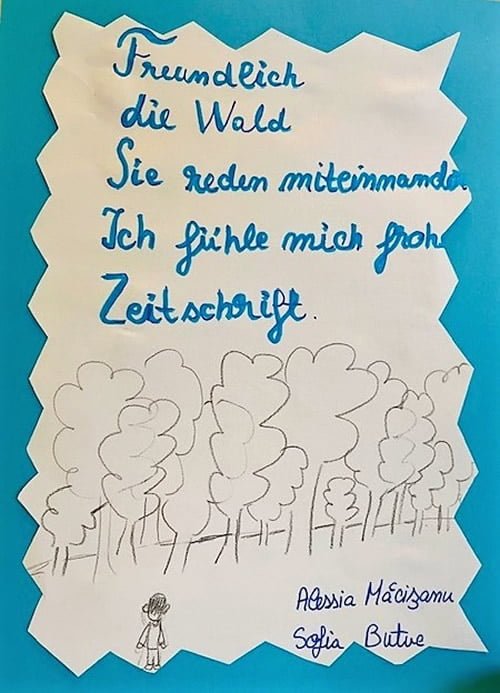 Freundlich
die Wald
Sie reden miteinmander
Ich fühle mich froh
Zeitschrift.
Alessia Măcișanu
Sofia Butuc